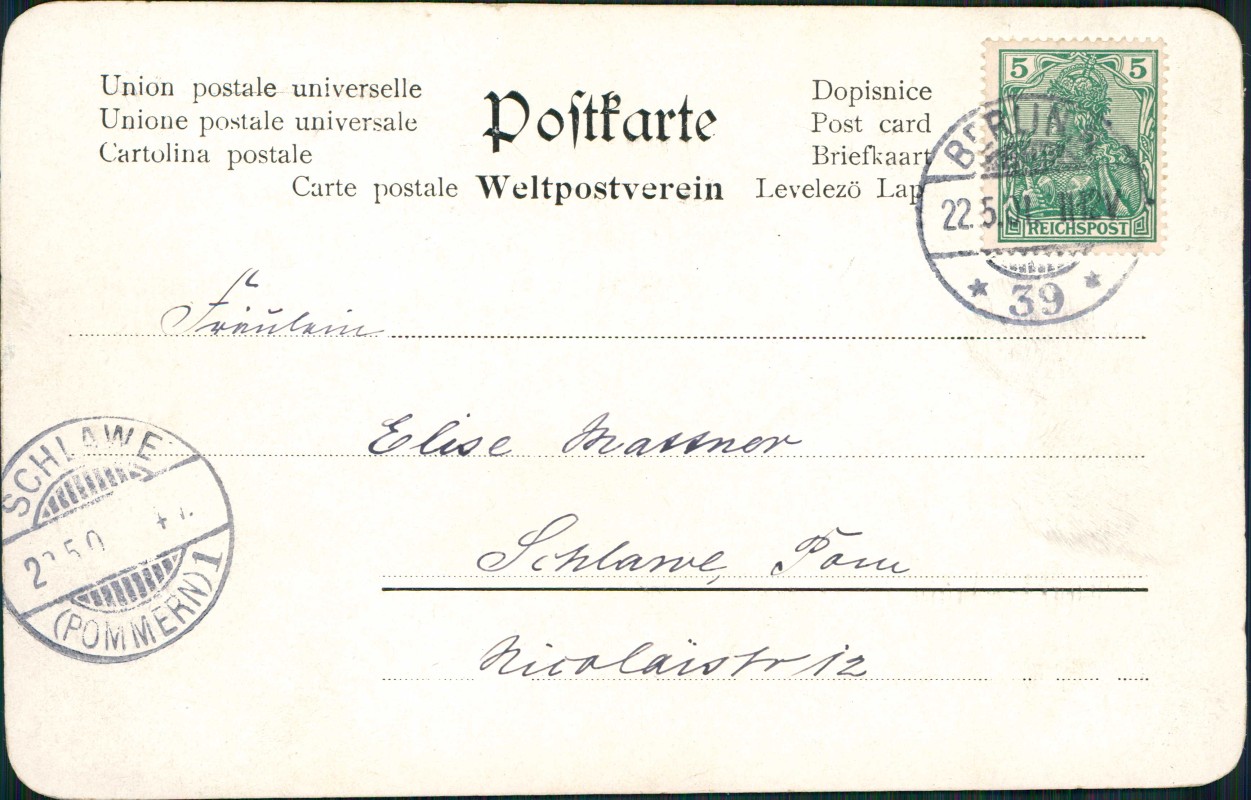 Union postale universelle
Unione postale universale
Cartolina postale
Carte postale
Poſtkarte
Weltpostverein
Dopisnice
Post card
Briefkaart
Levelezö Lap
5 5
REICHSPOST
BERLIN
22.5.
* 39 *
Fräulein
Elise Mattner
Schlawe, Pom
Nicolaistr 12
SCHLAWE
(POMMERN) 1